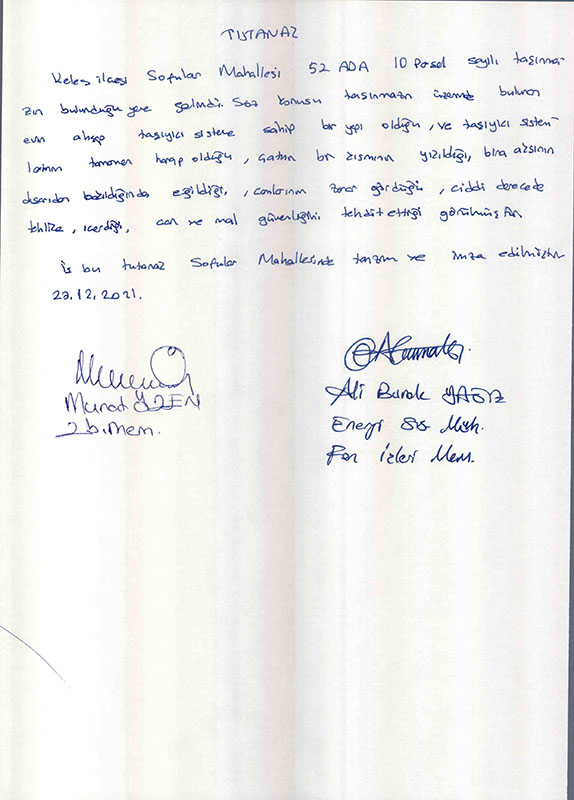 TUTANAK
Keles ilçesi Sofular Mahallesi 52 ADA 10 Parsel sayılı taşınma-
zın bulunduğu yere gelindi. Söz konusu taşınmazın üzerinde bulunan
evin ahşap taşıyıcı sisteme sahip bir yapı olduğu, ve taşıyıcı sistem-
lerinin tamamen harap olduğu, çatının bir kısmının yıkıldığı, bina
dışarıdan bakıldığında eğildiği, camlarının zarar gördüğü, ciddi derecede
tehlike, içerdiği, can ve mal güvenliğini tehdit ettiği görülmüştür.
İş bu tutanak Sofular Mahallesinde tanzim ve imza edilmiştir
.12.2021.
Murat
Ali Burak YAĞIZ
Zb. Mem.
Enerji Sis Müh.
Fen İşleri Mem.